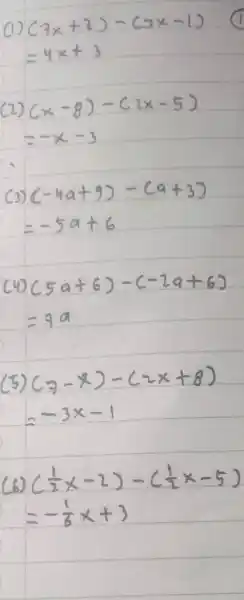 (1) (7x+2)-(3x-1)
=4x+3
(2) (x-8)-(2x-5)
=-x-3
(3) (-4a+9)-(a+3)
=-5a+6
(4) (5a+6)-(-2a+6)
=9a
(5) (7-x)-(2x+8)
=-3x-1
(6) (\frac{1}{3}x-2)-(\frac{1}{2}x-5)
=-\frac{1}{6}x+3